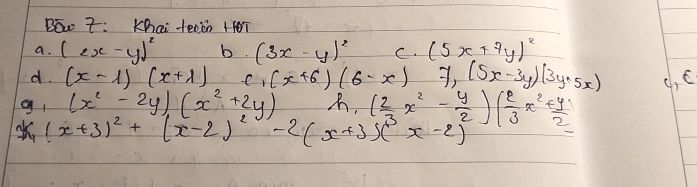 Bài 7: Khai triển HĐT
a. (2x - y)² b. (3x - y)² c. (5x + 7y)²
d. (x - 1) (x + 1) e, (x + 6) (6 - x) f, (5x - 3y) (3y + 5x)
g, (x² - 2y) (x² + 2y) h, (2/3 x² - y/2) (2/3 x² + y/2)
k, (x + 3)² + (x - 2)² - 2(x + 3)(x - 2)